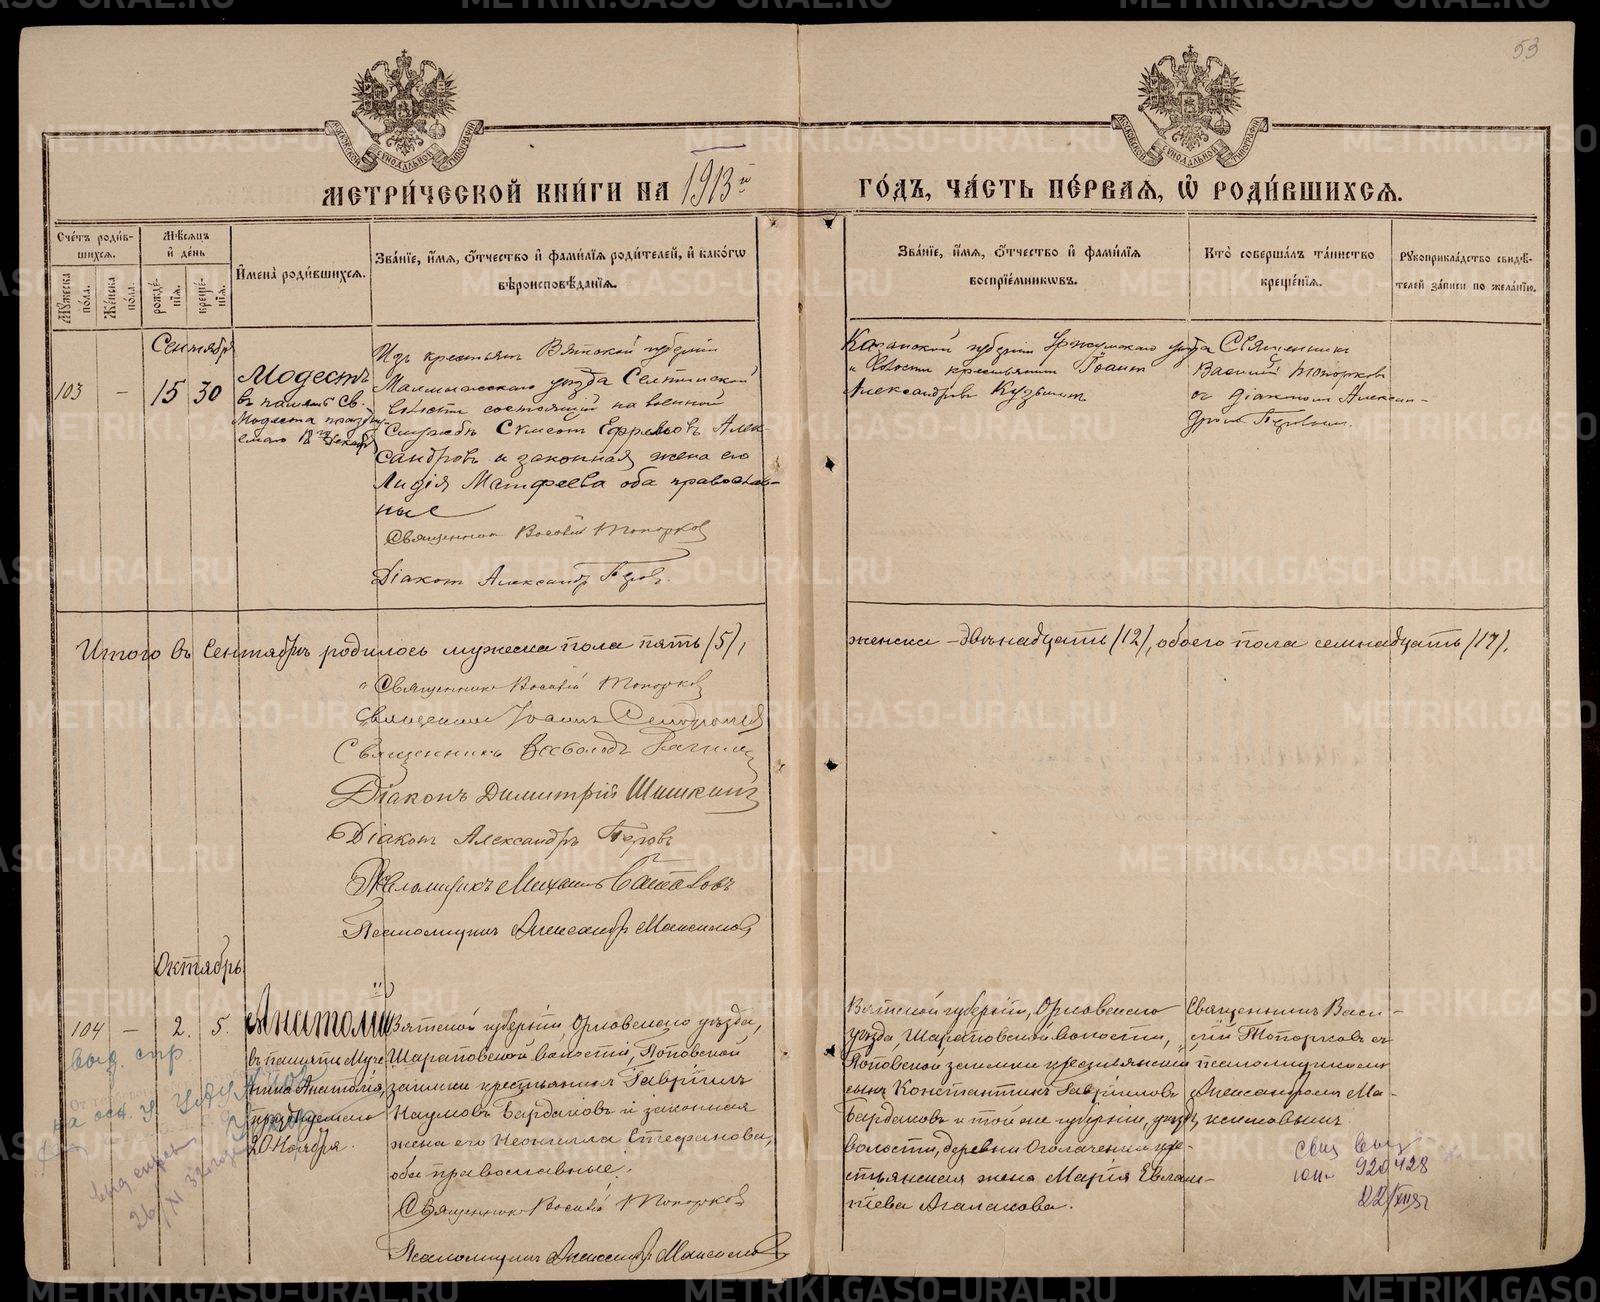 53
МОСКОВСКОЙ СѴНОДАЛЬНОЙ ТИПОГРАФІИ
МОСКОВСКОЙ СѴНОДАЛЬНОЙ ТИПОГРАФІИ
МЕТРИ́ЧЕСКОЙ КНИ́ГИ НА 1913й ГО́ДЪ, ЧА́СТЬ ПЕ́РВАЯ, Ѡ РОДИ́ВШИХСЯ.
Сче́тъ роди́вшихся.
Му́жеска по́ла.
Же́нска по́ла.
Мѣ́сяцъ и де́нь
рожде́нїя.
креще́нїя.
И҆мена̀ роди́вшихся.
Зва́нїе, и҆́мя, о҆́тчество и҆ фами́лїя роди́телей, и҆ како́гѡ
вѣроисповѣ́данїя.
Зва́нїе, и҆́мя, о҆́тчество и҆ фами́лїя
воспрїе́мниковъ.
Кто̀ соверша́лъ та́инство
креще́нїя.
Рукоприкла́дство свидѣ́-
телей за́писи по жела́нїю.
Сентябрь
103 — 15 30
Модестъ
въ память Св.
Модеста празднуемаго
Изъ крестьянъ Вятской губерніи
Малмыжскаго уѣзда Селтинской
волости состоящій на военной
службѣ Симеонъ Ефремовъ Алек-
сандровъ и законная жена его
Лидія Матфеева оба православ-
ные
Священник Василій Топорков
Діаконъ Александръ Перов.
Казанской губерніи Уржумскаго уѣзда
волости крестьянин Іоаннъ
Александровъ Кузьминъ
Священникъ
Василій Топорков
съ діаконом Алексан-
дромъ Перовым.
Итого въ Сентябрѣ родилось мужеска пола пять (5),
женска – двѣнадцать (12), обоего пола семнадцать (17).
Священникъ Василій Топорков
Священникъ Іоаннъ
Священникъ Всеволодъ
Діаконъ Димитрій Шишкинъ
Діаконъ Александръ Перовъ
Псаломщикъ Михаилъ
Псаломщикъ Александръ Максимов
Октябрь
104 — 2. 5.
Анатолій
въ память Муче-
ника Анатолія,
празднуемаго
20 Ноября.
Вятской губерніи, Орловскаго уѣзда,
Шараповской волости, Поповской
заимки крестьянинъ Гавріилъ
Наумовъ Бардаковъ и законная
жена его Неонилла Стефанова,
оба православные.
Священник Василій Топорков
Псаломщикъ Александръ Максимов
Вятской губерніи, Орловскаго
уѣзда, Шараповской волости,
Поповской заимки крестьянскій
сынъ Константинъ Гавріиловъ
Бардаковъ и той же губерніи, уѣзда,
волости, деревни кре-
стьянская жена Марія Евлам-
піева Агалакова.
Священникъ Васи-
лій Топорковъ съ
псаломщикомъ
Александромъ Ма-
ксимовымъ.
выд. спр.
выд справка
свид выд
юп 920428
22/VIII 51